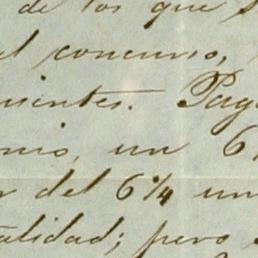 de los que s
el concurso,
nientes. Pag
nio, un 6
r del 6 1/4 un
alidad; pero